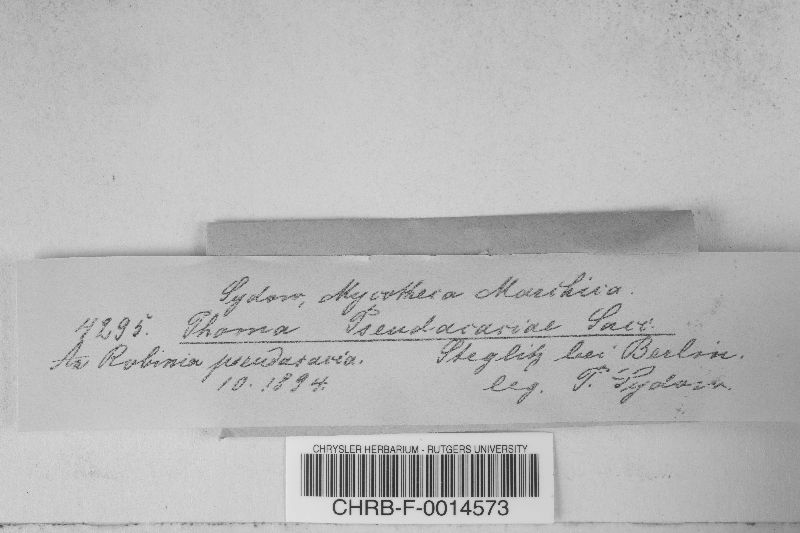 Sydow, Mycotheca Marchica.
4295. Phoma Pseudacaciae Sacc.
An Robinia pseudacacia. Steglitz bei Berlin.
10. 1894. leg. P. Sydow.
CHRYSLER HERBARIUM - RUTGERS UNIVERSITY
CHRB-F-0014573